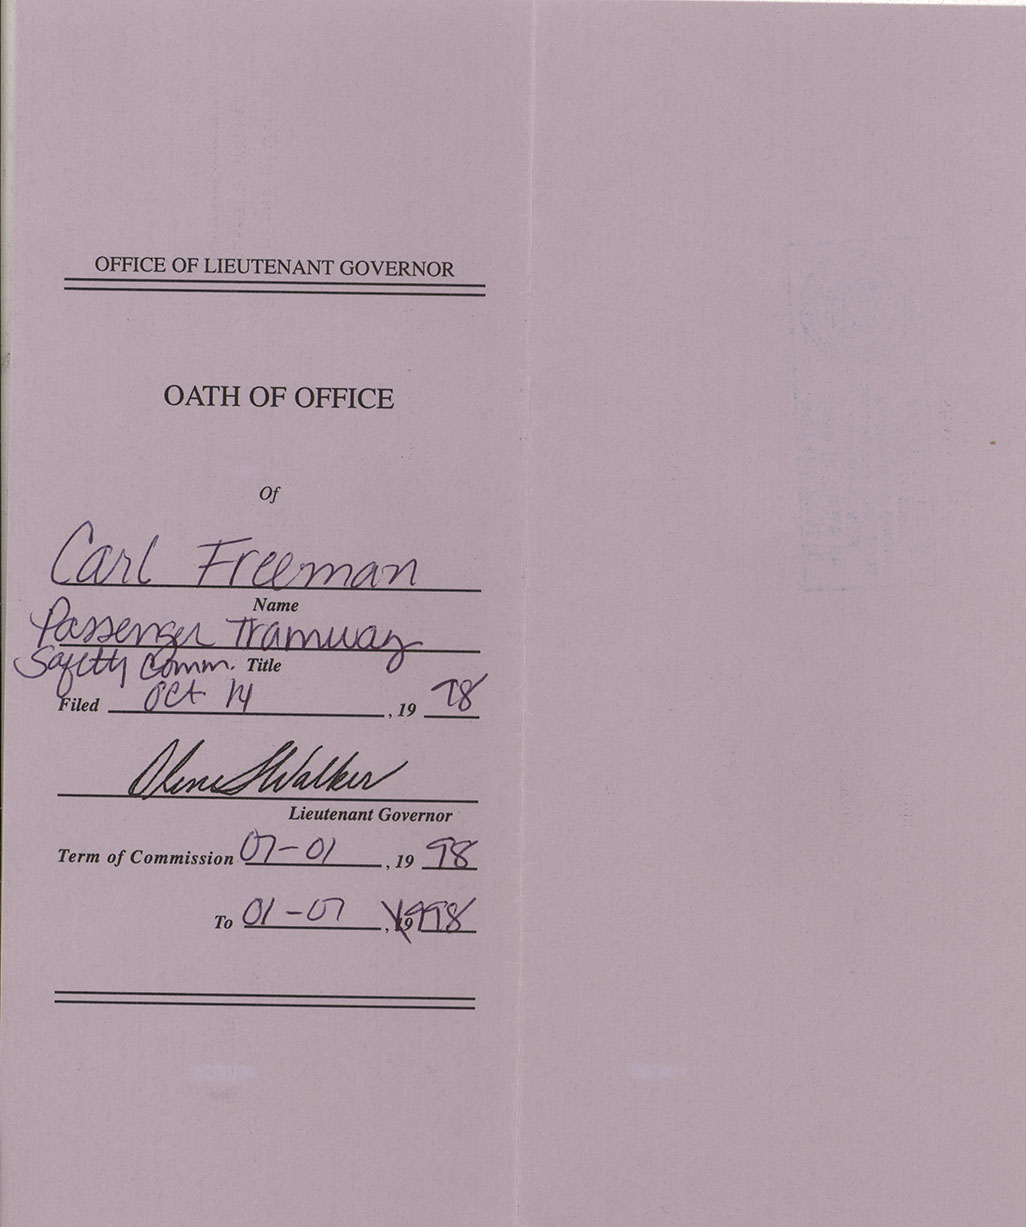 OFFICE OF LIEUTENANT GOVERNOR
OATH OF OFFICE
Of
Carl Freeman
Name
Passenger Tramway
Safety Comm. Title
Filed Oct 14, 1998
Olene S Walker
Lieutenant Governor
Term of Commission 07-01, 1998
To 01-07,